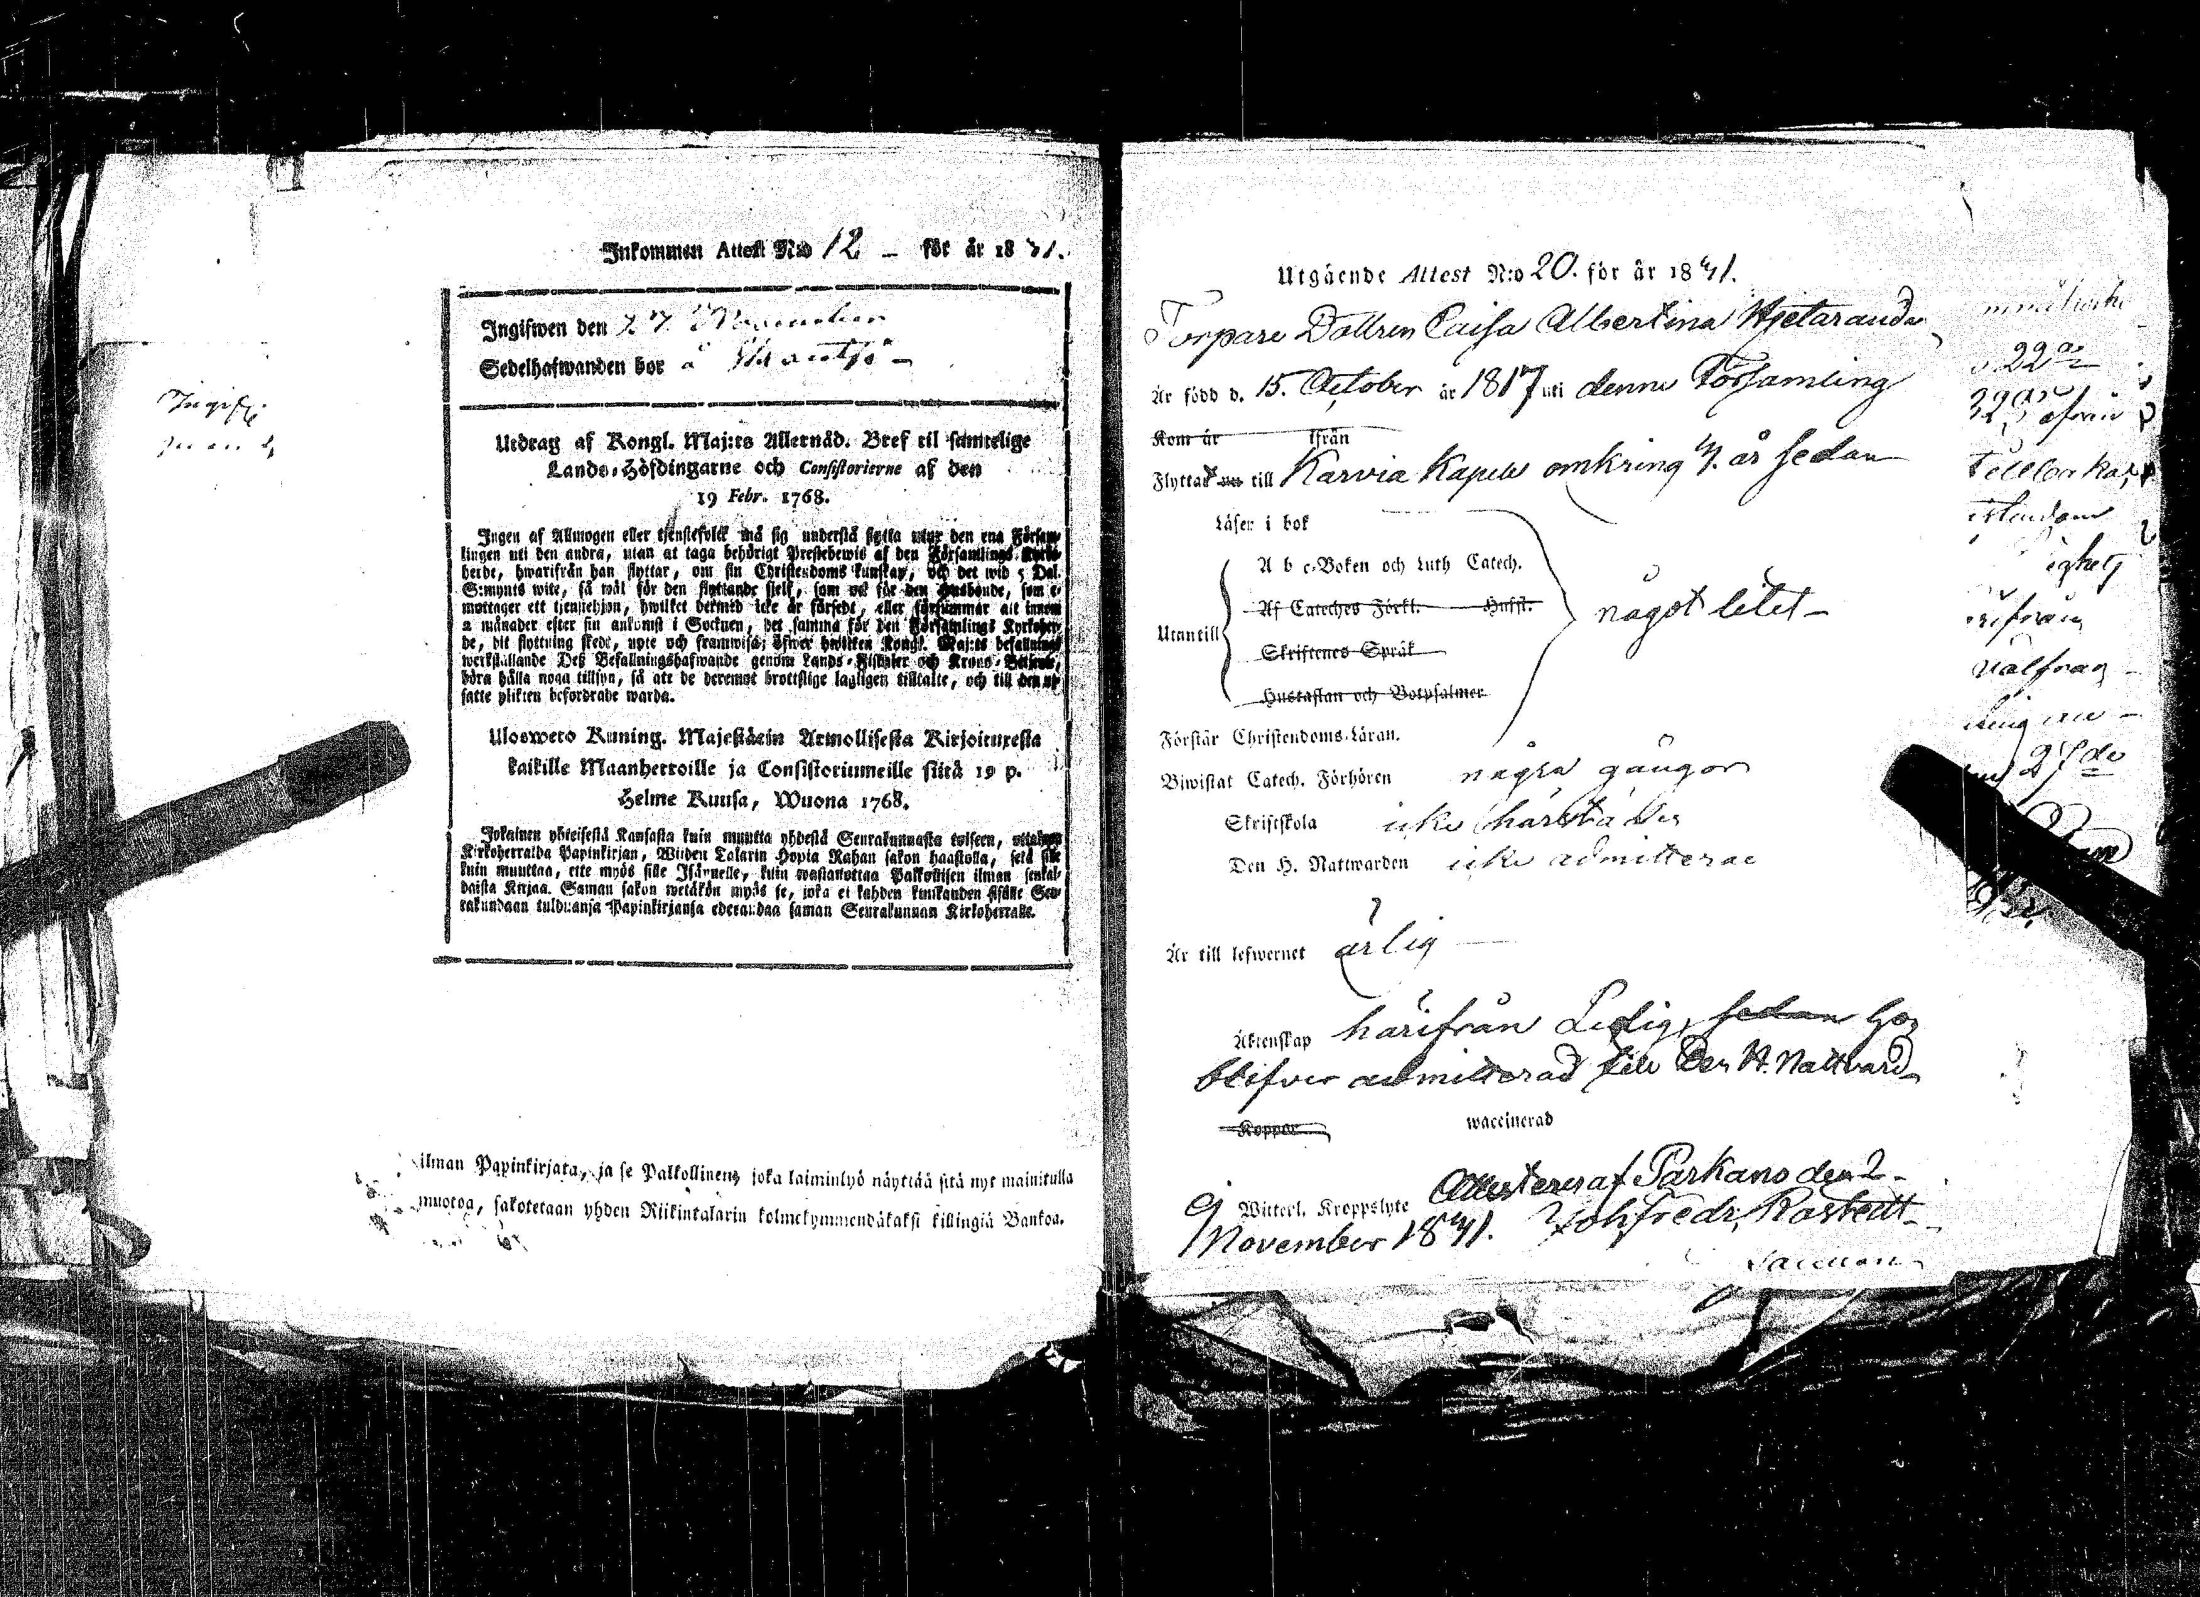 Inkommen Attest N:o 12 – för år 1841.
Ingifwen den 27 November
Sedelhafwanden bor å
Utdrag af Kongl. Maj:ts Allernåd. Bref til samtelige
Lands-Höfdingarne och Consistorierne af den
19 Febr. 1768.
Ingen af Allmogen eller tjenstefolck må sig understå flytta utur den ena Försam-
lingen uti den andra, utan at taga behörigt Prestebewis af den Församlings Kyrko-
herde, hwarifrån han flyttar, om sin Christendoms kunskap, och det wid 5 Dal.
S:mynts wite, så wäl för den flyttande sielf, som ock för den Husbonde, som e-
mottager ett tjenstehjon, hwilket dermed icke är försedt, eller försummar att innom
2 månader efter sin ankomst i Socknen, det samma för den Församlings Kyrkoher-
de, dit flyttning skedt, upte och framwisa; öfwer hwilken Kongl. Maj:ts befallnings
werkställande Deß Befallningshafwande genom Lands-Fiskaler och Krono-Betjente,
böra hålla noga tillsyn, så att de deremot brottslige lagligen tilltalte, och till den ut-
satte plikten befordrade warda.
Ulosweto Kuning. Majestätin Armollisesta Kirjoituxesta
kaikille Maanherroille ja Consistoriumeille siitä 19 p.
Helme Kuusa, Wuona 1768.
Jokainen yhteisestä Kansasta kuin muutta yhdestä Seurakunnasta toiseen, ottakaan
Kirkoherralda Papinkirjan, Wiiden Talarin Hopia Rahan sakon haastolla, sekä sille
kuin muuttaa, ette myös sille Isännelle, kuin wastanottaa Palkollisen ilman senkal-
daista Kirjaa. Saman sakon wetäkön myös se, joka ei kahden kuukauden sisälle Seu-
rakundaan tulduansa Papinkirjansa edestandaa saman Seurakunnan Kirkoherralle.
ilman Papinkirjata, ja se Palkollinen, joka laiminlyö näyttää sitä nyt mainitulla
muotoa, sakotetaan yhden Riikintalarin kolmekymmendäkaksi killingiä Bankoa.
Utgående Attest N:o 20. för år 1841.
Torpare Dottren Caisa Albertina
Är född d. 15. October år 1817 uti denne Församling
Kom år ifrån
Flyttat till Karvia Kapell omkring 4. år sedan
Läser i bok
A b c-Boken och Luth Catech.
Af Cateches Förkl. Husst.
Utantill något litet –
Skriftenes Språk
Hustaflan och Botpsalmer
Förstår Christendoms-Läran.
Biwistat Catech. Förhören några gånger
Skriftskola icke härstädes
Den H. Nattwarden icke admitterad
Är till lefwernet ärlig
Äktenskap härifrån Ledig, sedan hon
blifvit admitterad till Den H. Nattvard
Koppor waccinerad
Witterl. Kroppslyte Attesteras af Parkano den 2
November 1841. Joh Fredr. Rostedt